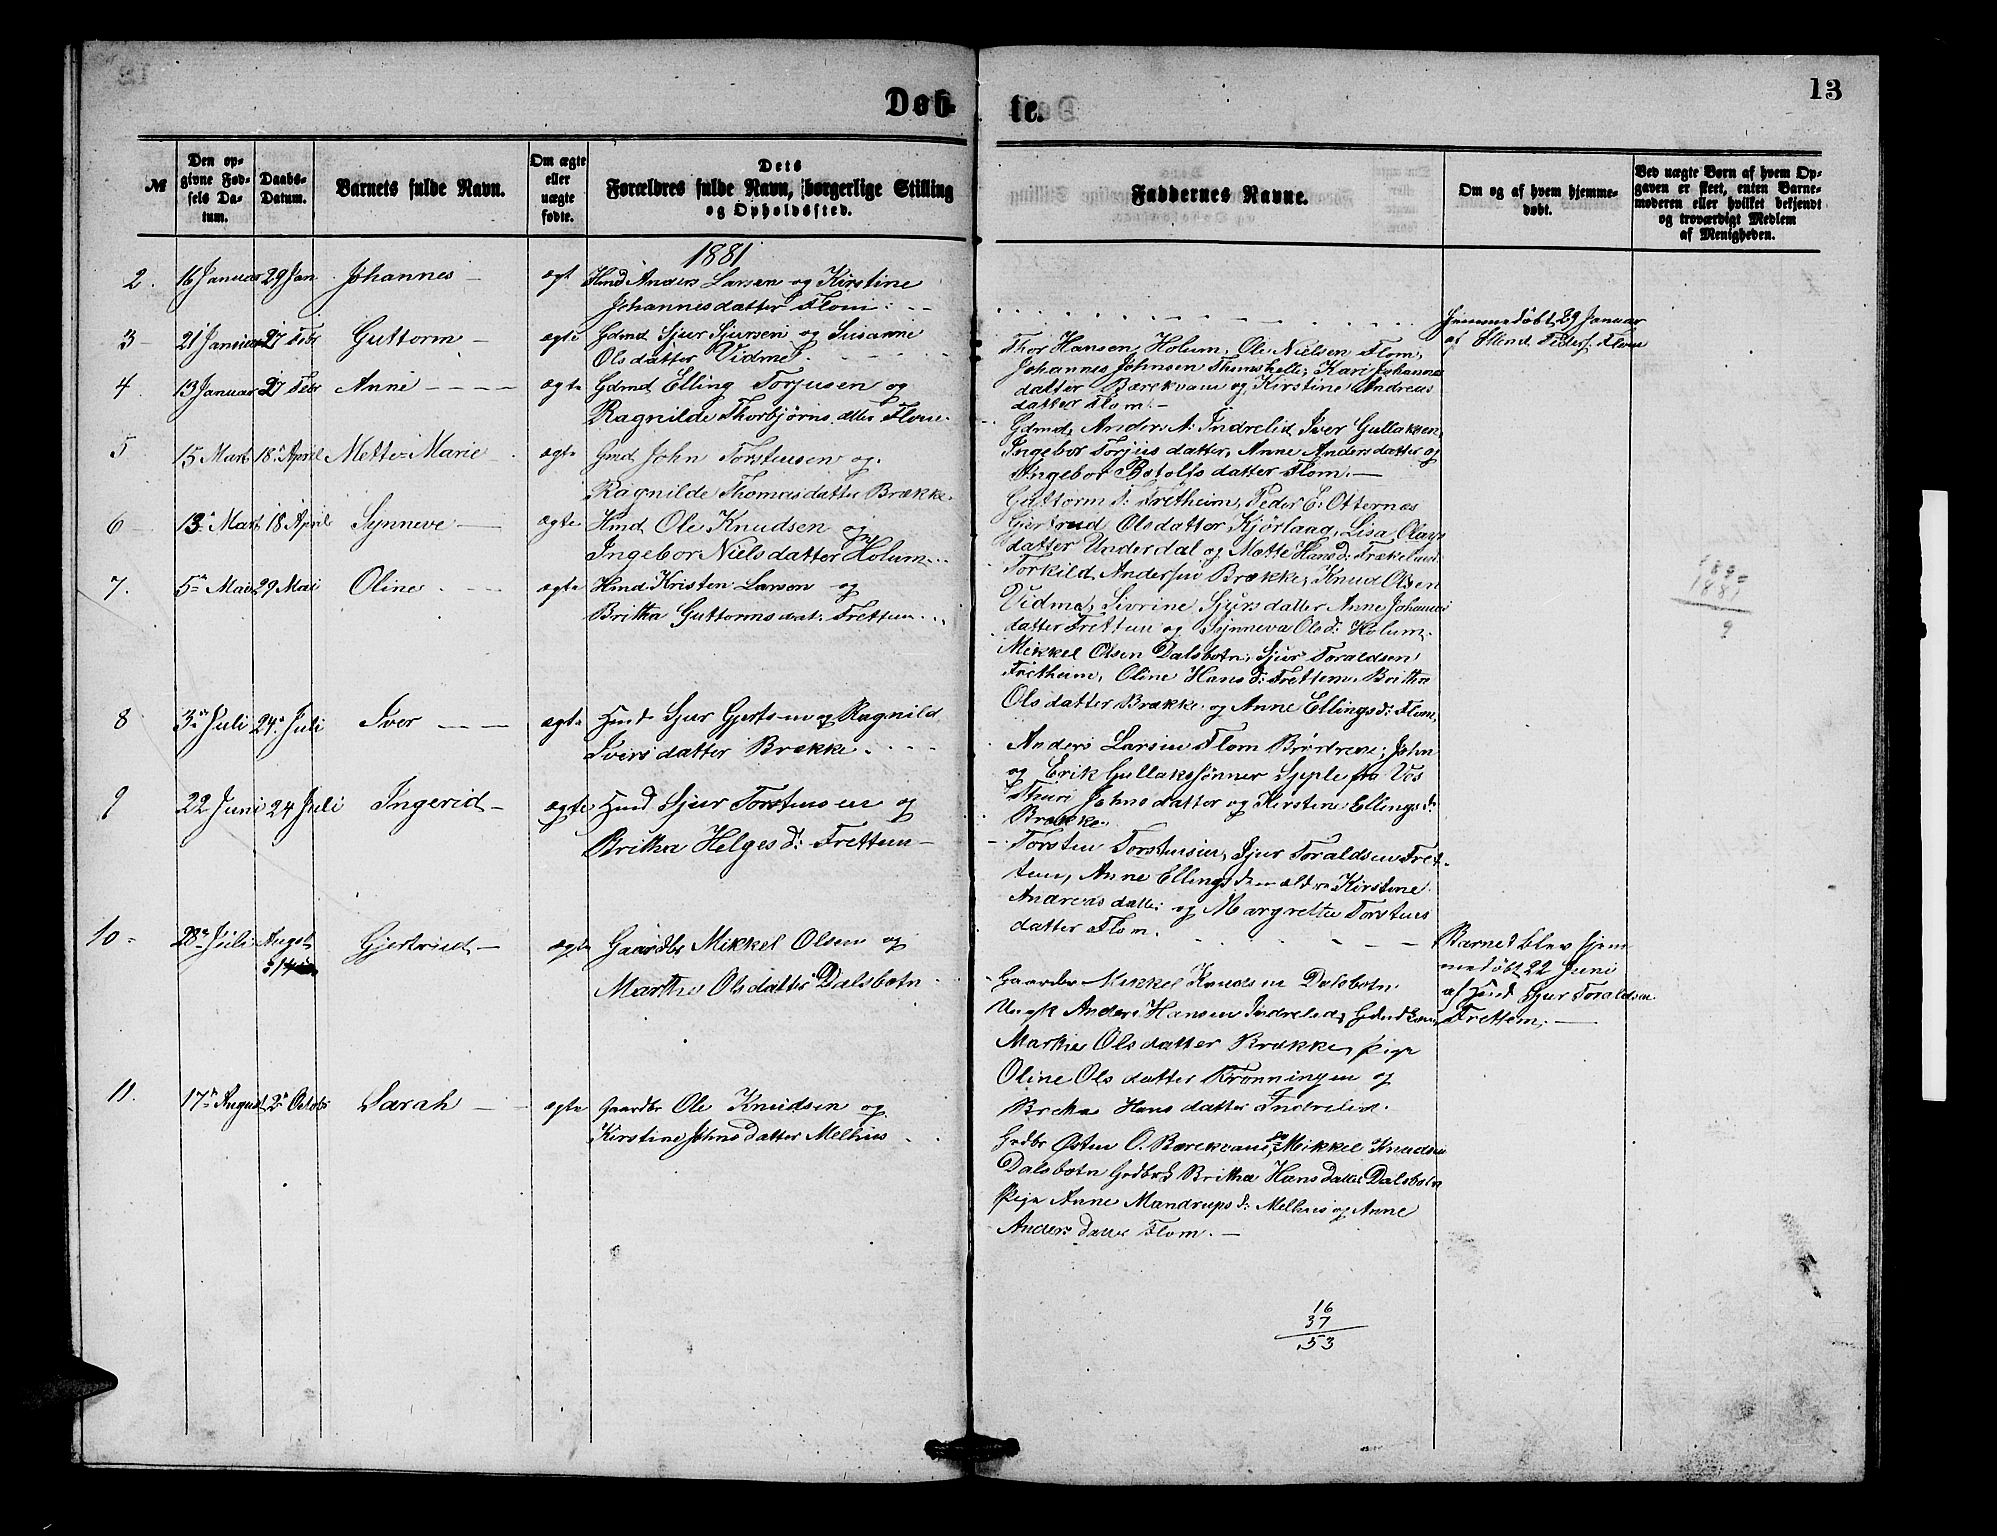 13
Døbte.
№
Den opgivne Fødsels Datum.
Daabs-Datum.
Barnets fulde Navn.
Om ægte eller uægte fødte.
Dets Forældres fulde Navn, borgerlige Stilling og Opholdssted.
Faddernes Navne.
Om og af hvem hjemmedøbt.
Ved uægte Børn af hvem Opgaven er skeet, enten Barnemoderen eller hvilket bekjendt og troværdigt Medlem af Menigheden.
1881
2. 16 Januar 29 Jan Johannes — ægt Hmd Anders Larsen og Kirstine
Johannesdatter Flom.
Hjemmedøbt 29 Januar
af Flom
3 — 21 Januar 27 Febr Guttorm — ægte Gdmd Sjur Sjursen og Susanne
Olsdatter Vidme.
Thor Hansen Holum, Ole Nielsen Flom,
Johannes Johnsen Kari Johannes
datter Bærekvam og Kirstine Andreas
datter Flom. —
4. 13 Januar 27 Febr Anne — ægte Gdmd Elling Torjusen og
Ragnilde Thorbjørns datter Flom
Gdmd, Anders A. Indrelid, Iver Gullaksen,
Ingebor Torjus datter, Anne Anders datter og
Ingebor Botolfs datter Flom. —
5 15 Mart 18 April Mette-Marie — ægte Gmd John Torstensen og
Ragnilde Thomasdatter Brække.
Guttorm T. Fretheim, Peder E. Otternes
Gjertrud Olsdatter Kjørlaag, Lisa Olays
datter Underdal og Mette Hansd:
6 — 13 Mart 18 April Synneve — ægte Hmd Ole Knudsen og
Ingebor Nielsdatter Holum
Torkild Andersen Brække, Knud Olsen
Vidme, Sivrine Sjursdatter Anne Johannes
datter Frettun og Synneva Olsd: Holum.
7. 5 Mai 29 Mai Oline — ægte Hmd Kristen Larsen og
Britha Guttormsdat. Frettun
Mikkel Olsen Dalsbotn, Sjur Toraldsen
Fretheim, Oline Hansd: Frettem, Britha
Olsdatter Brække og Anne Ellingsd: Flom.
8 3 Juli 24 Juli Iver — ægte Hmd Sjur Gjertsen og Ragnild
Ivers datter Brække.
Anders Larsen Flom Brødrene John
og Erik Gullakssønner Sjple fra Vos
Thuri Johnsdatter og Kirstine Ellingsd:
Brække.
9 22 Juni 24 Juli Ingerid — ægte Hmd Sjur Torstensen og
Britha Helgesd: Frettun —
Torsten Torstensen, Sjur Toraldsen Fret-
tun, Anne Ellingsd: Kirstine
Andreas datter og Margrette Torstens
datter Flom.
Barnet blev hjem
medøbt 22 Juni
af Hmd Sjur Toraldsen
Frettem. —
10 — 28 Juli August 14 Gjertrud — ægte Gaardbr Mikkel Olsen og
Martha Olsdatter Dalsbotn
Gaardbr Mikkel Knudsen Dalsbotn
Ungk Anders Hansen Indrelid,
Martha Olsdatter Brække, pige
Oline Olsdatter Brønningen og
Hans datter Indrelid.
11. 17 August 2 Octob Sarah — ægte Gaardbr Ole Knudsen og
Kirstine Johnsdatter Melhus
Grdbr Østen O. Bærekvam, Mikkel Knudsen
Dalsbotn Britha Hansdatter Dalsbotn
Pige Anne Mandrupsd: Melhus og Anne
Anders datter Flom. —
1881
9
16
37
53